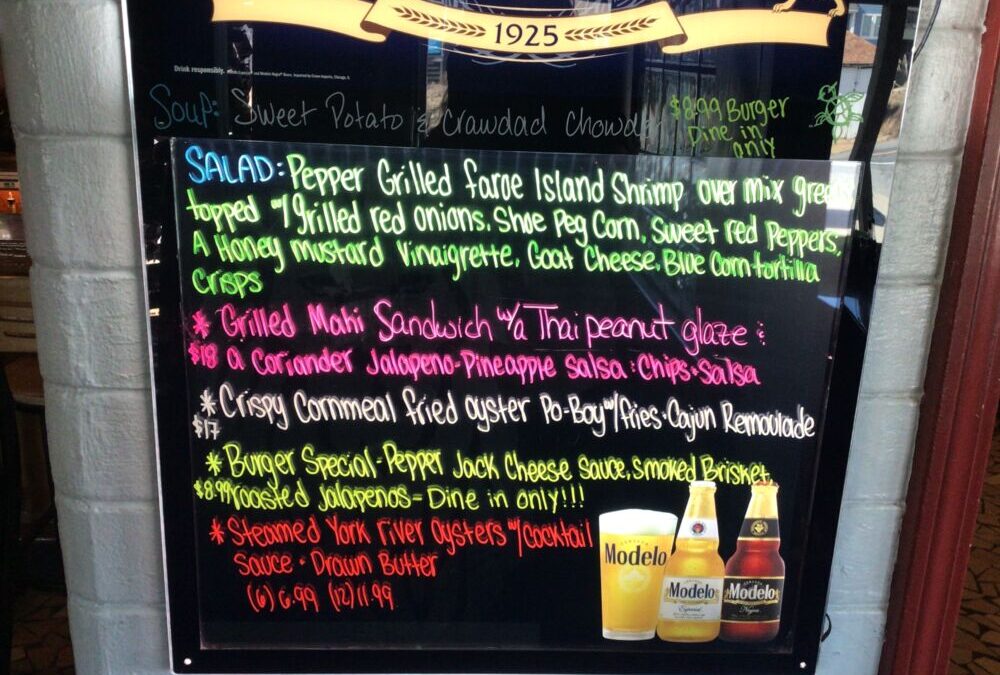 1925
Drink responsibly.
Soup: Sweet Potato & Crawdad Chowder
$8.99 Burger
Dine in
only
SALAD: Pepper Grilled faroe Island Shrimp over mix greens
topped w/grilled red onions, Shoe Peg Corn, Sweet red Peppers,
A Honey mustard Vinaigrette, Goat Cheese, Blue Corn tortilla
crisps
* Grilled Mahi Sandwich w/a Thai peanut glaze &
$18 a Coriander Jalapeno-Pineapple Salsa & Chips & Salsa
* Crispy Cornmeal fried oyster Po-Boy w/fries - Cajun Remoulade
$17
* Burger Special - Pepper Jack Cheese Sauce, Smoked Brisket,
$8.99 roasted Jalapenos = Dine in only!!!
* Steamed York River Oysters w/Cocktail
Sauce - Drawn Butter
(6) 6.99 (12) 11.99
Modelo
Modelo
Especial
Modelo
Negra